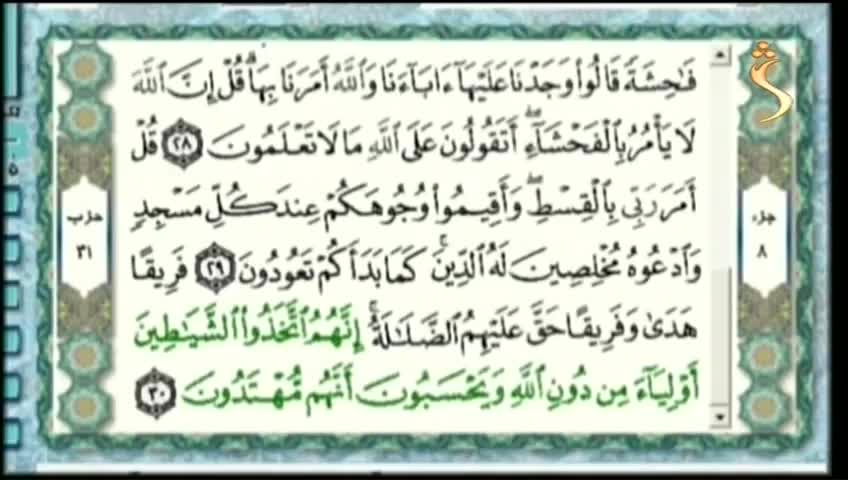 فَـٰحِشَةً قَالُوا۟ وَجَدْنَا عَلَيْهَآ ءَابَآءَنَا وَٱللَّهُ أَمَرَنَا بِهَا ۗ قُلْ إِنَّ ٱللَّهَ
لَا يَأْمُرُ بِٱلْفَحْشَآءِ ۖ أَتَقُولُونَ عَلَى ٱللَّهِ مَا لَا تَعْلَمُونَ ٢٨ قُلْ
أَمَرَ رَبِّى بِٱلْقِسْطِ ۖ وَأَقِيمُوا۟ وُجُوهَكُمْ عِندَ كُلِّ مَسْجِدٍ
وَٱدْعُوهُ مُخْلِصِينَ لَهُ ٱلدِّينَ ۚ كَمَا بَدَأَكُمْ تَعُودُونَ ٢٩ فَرِيقًا
هَدَىٰ وَفَرِيقًا حَقَّ عَلَيْهِمُ ٱلضَّلَـٰلَةُ ۗ إِنَّهُمُ ٱتَّخَذُوا۟ ٱلشَّيَـٰطِينَ
أَوْلِيَآءَ مِن دُونِ ٱللَّهِ وَيَحْسَبُونَ أَنَّهُم مُّهْتَدُونَ ٣٠
جزء
٨
حزب
٣١